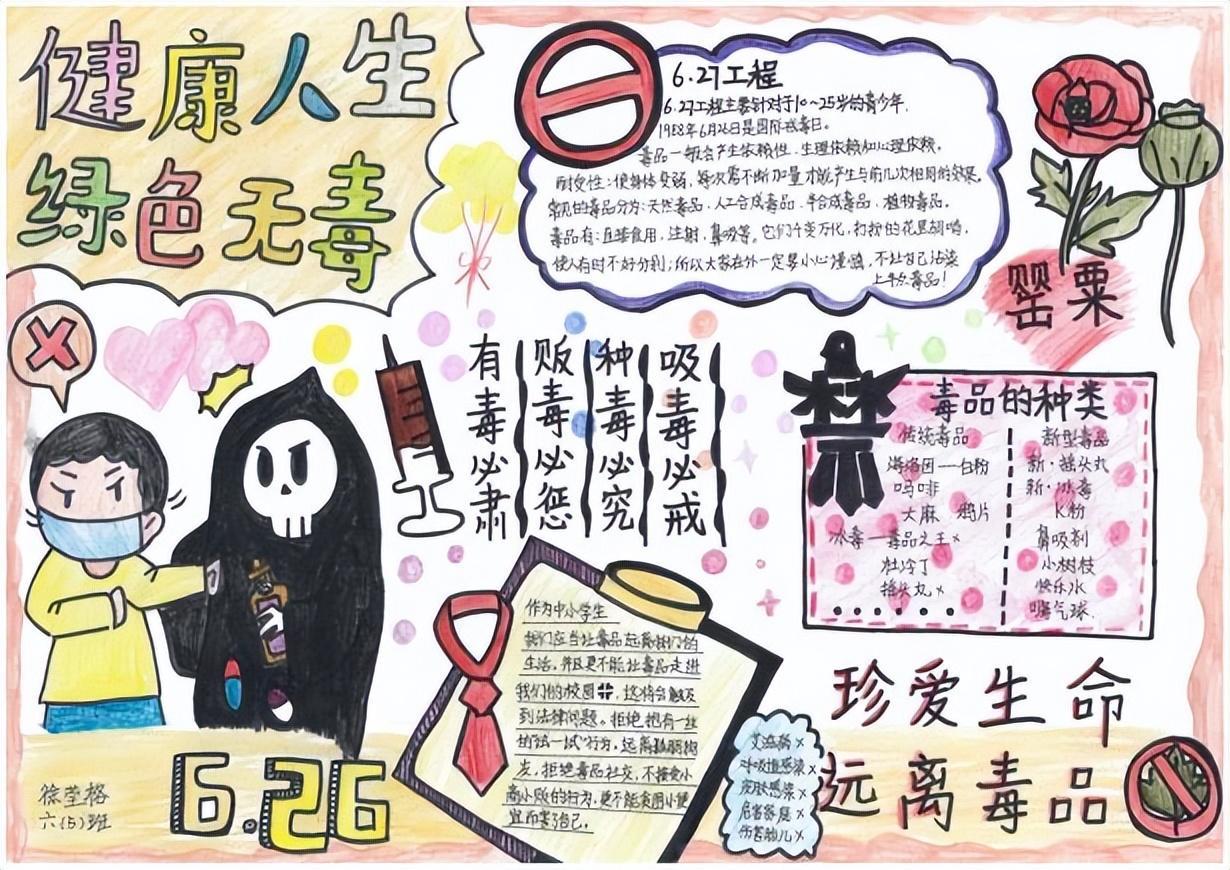 健康人生
绿色无毒
6.27工程
6.27工程主要针对于10~25岁的青少年.
1988年6月26日是国际戒毒日。
毒品一般会产生依赖性.生理依赖和心理依赖。
耐受性:使身体变弱,每次需不断加量才能产生与前几次相同的效果。
常见的毒品分为:天然毒品.人工合成毒品.半合成毒品.植物毒品。
毒品有:直接食用,注射,鼻吸等。它们千变万化,打扮的花里胡哨,
使人有时不好分别;所以大家在外一定要小心谨慎,不让自己沾染
上半点毒品!
罂粟
有毒必肃
贩毒必惩
种毒必究
吸毒必戒
禁
毒品的种类
传统毒品
海洛因——白粉
吗啡
大麻 鸦片
冰毒—毒品之王×
杜冷丁
摇头丸×
新型毒品
新·摇头丸
新·冰毒
K粉
鼻吸剂
小树枝
快乐水
嗨气球.
作为中小学生
我们应当让毒品远离我们的
生活,并且更不能让毒品走进
我们的校园,这将会触及
到法律问题。拒绝抱有一丝
的"试一试"行为,远离狐朋狗
友,拒绝毒品社交,不接受小
商小贩的行为,更不能贪图小便
宜而害了自己.
艾滋病×
呼吸道感染×
皮肤感染×
危害家庭×
伤害胎儿×
珍爱生命
远离毒品
6.26
徐莹格
六(5)班